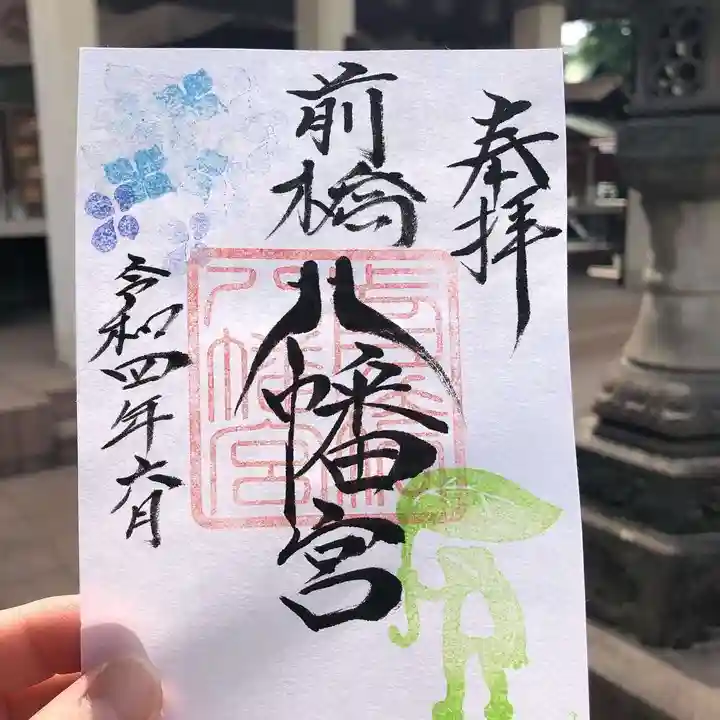 奉拝
前橋
八幡宮
令和四年六月